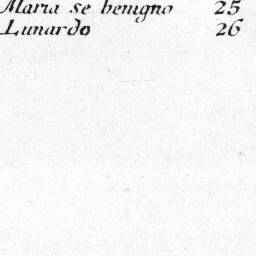 Maria se benigno 25
Lunardo 26